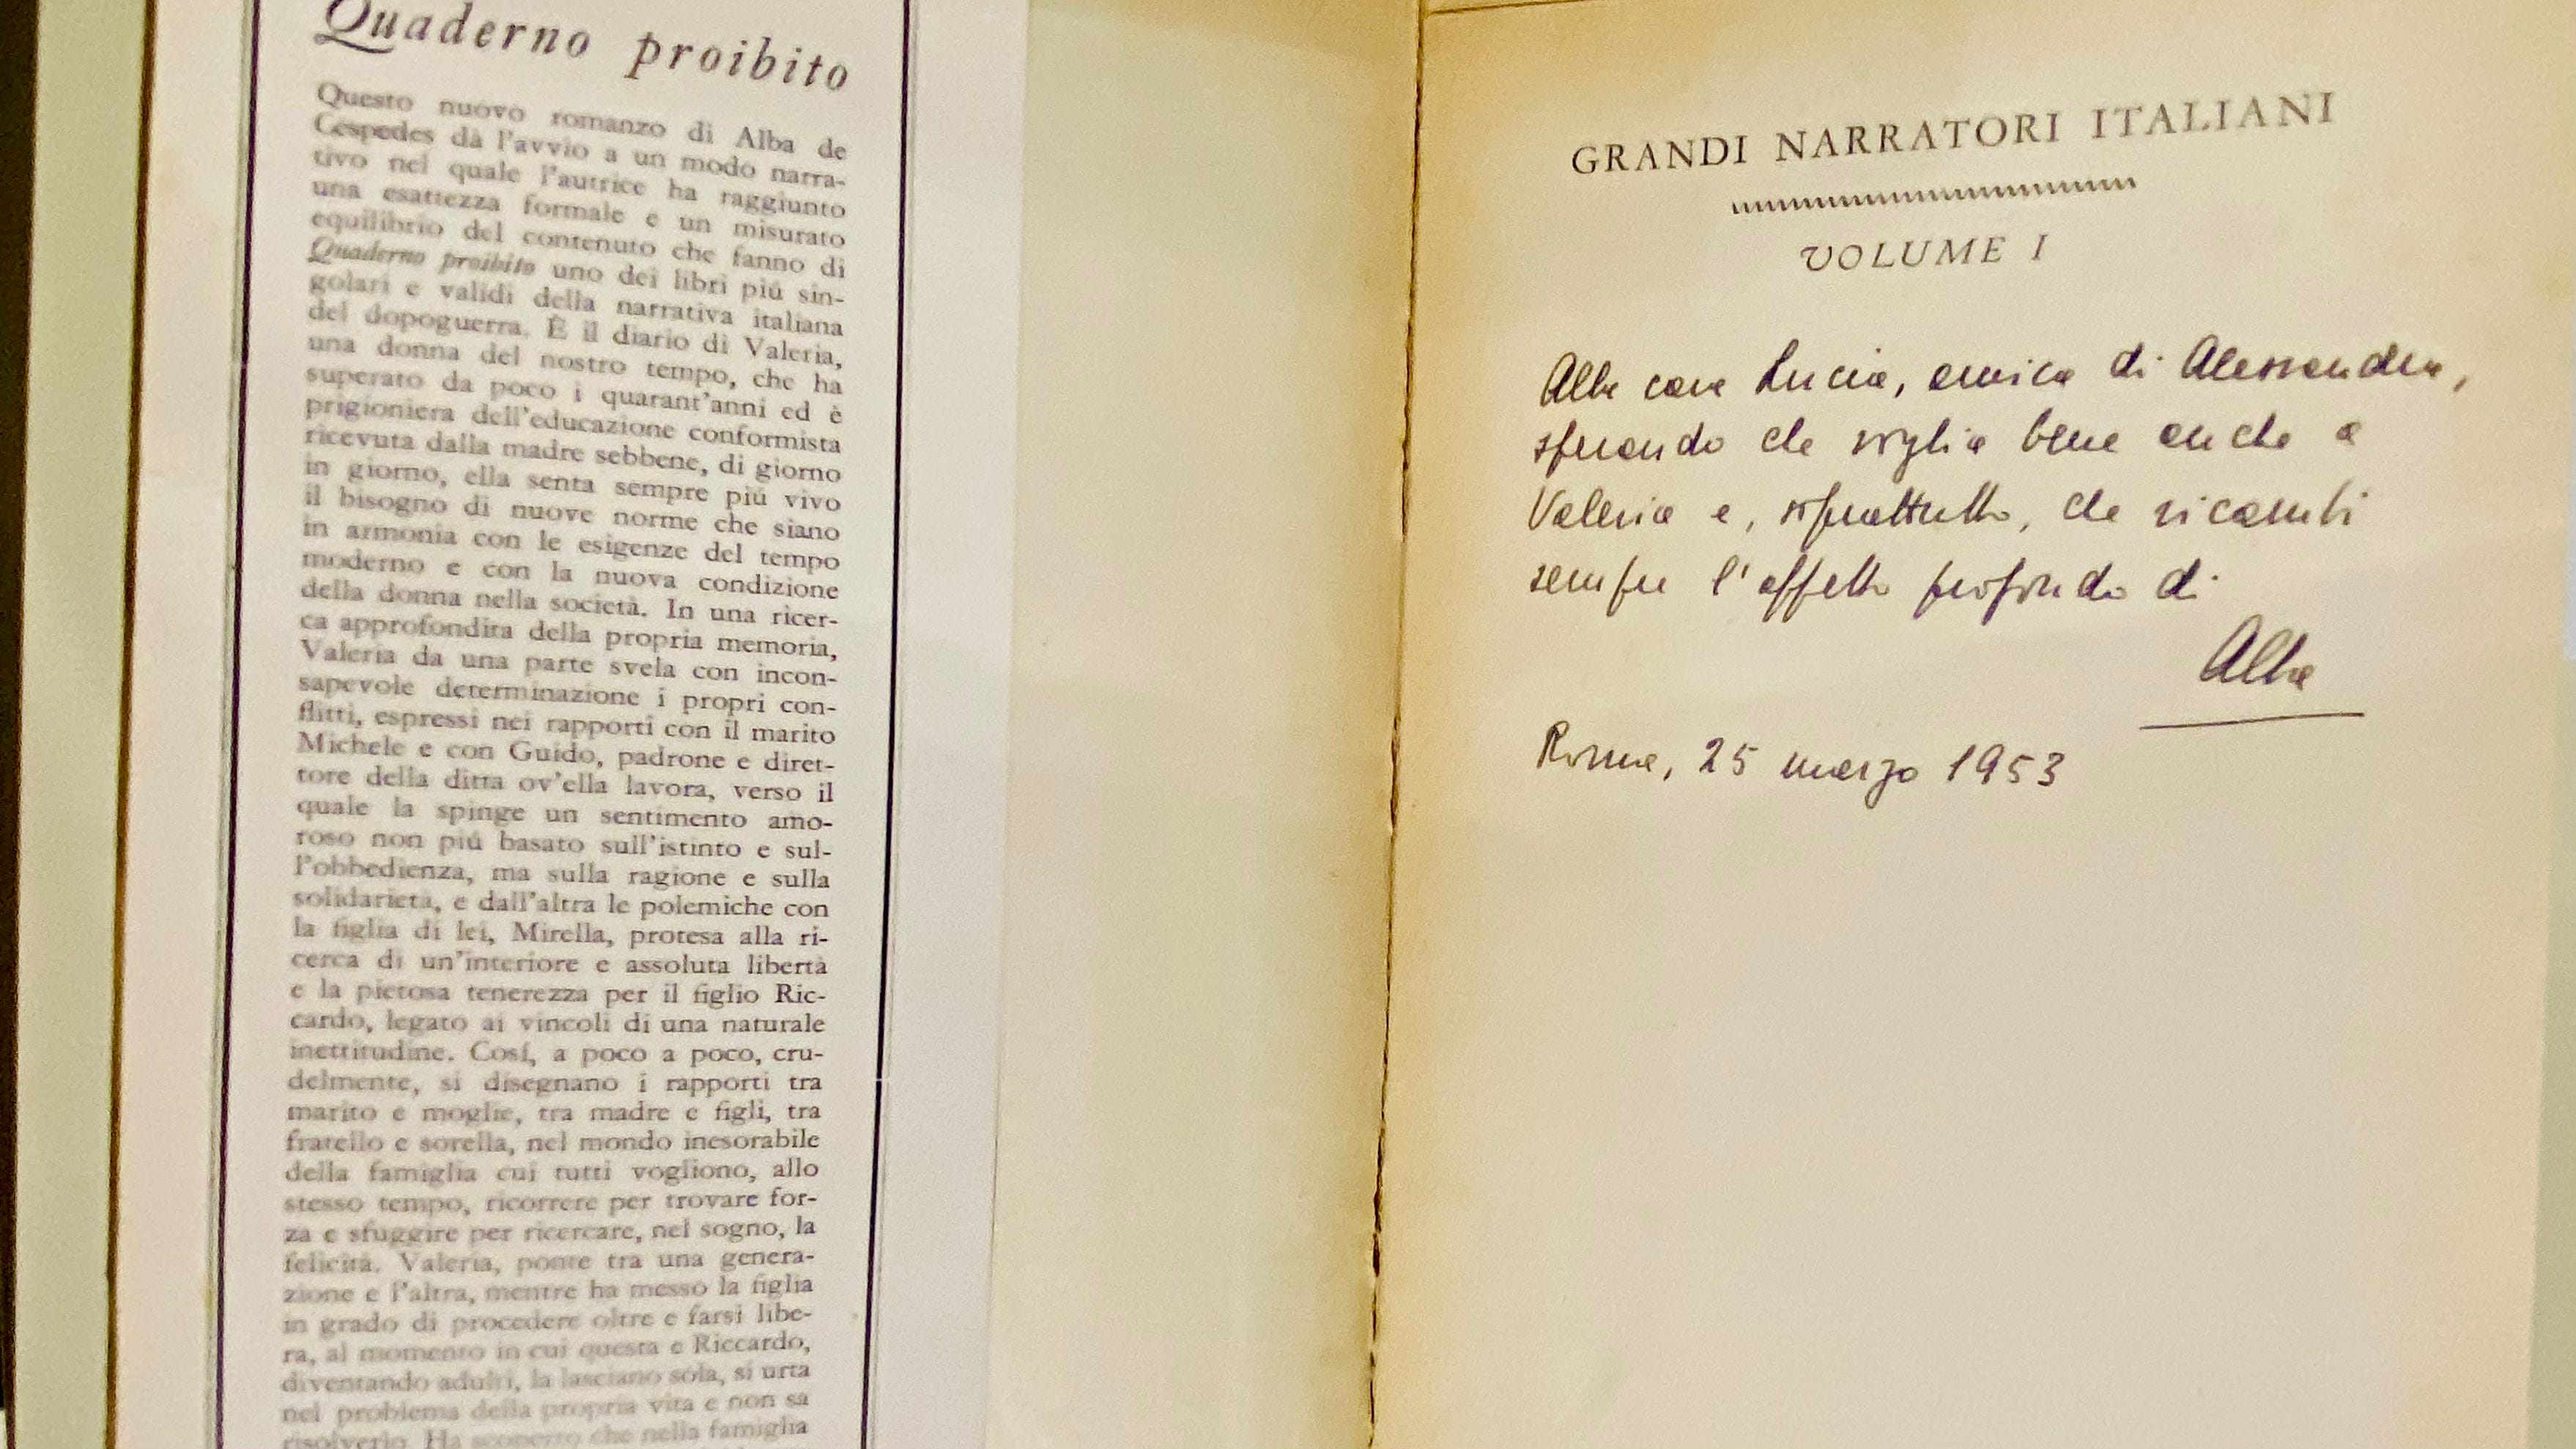 Quaderno proibito
Questo nuovo romanzo di Alba de
Cespedes dà l'avvio a un modo narra-
tivo nel quale l'autrice ha raggiunto
una esattezza formale e un misurato
equilibrio del contenuto che fanno di
Quaderno proibito uno dei libri piú sin-
golari e validi della narrativa italiana
del dopoguerra. È il diario di Valeria,
una donna del nostro tempo, che ha
superato da poco i quarant'anni ed è
prigioniera dell'educazione conformista
ricevuta dalla madre sebbene, di giorno
in giorno, ella senta sempre piú vivo
il bisogno di nuove norme che siano
in armonia con le esigenze del tempo
moderno e con la nuova condizione
della donna nella società. In una ricer-
ca approfondita della propria memoria,
Valeria da una parte svela con incon-
sapevole determinazione i propri con-
flitti, espressi nei rapporti con il marito
Michele e con Guido, padrone e diret-
tore della ditta ov'ella lavora, verso il
quale la spinge un sentimento amo-
roso non piú basato sull'istinto e sul-
l'obbedienza, ma sulla ragione e sulla
solidarietà, e dall'altra le polemiche con
la figlia di lei, Mirella, protesa alla ri-
cerca di un'interiore e assoluta libertà
e la pietosa tenerezza per il figlio Ric-
cardo, legato ai vincoli di una naturale
inettitudine. Cosí, a poco a poco, cru-
delmente, si disegnano i rapporti tra
marito e moglie, tra madre e figli, tra
fratello e sorella, nel mondo inesorabile
della famiglia cui tutti vogliono, allo
stesso tempo, ricorrere per trovare for-
za e sfuggire per ricercare, nel sogno, la
felicità. Valeria, ponte tra una genera-
zione e l'altra, mentre ha messo la figlia
in grado di procedere oltre e farsi libe-
ra, al momento in cui questa e Riccardo,
diventando adulti, la lasciano sola, si urta
nel problema della propria vita e non sa
risolverlo. Ha scoperto che nella famiglia
GRANDI NARRATORI ITALIANI
VOLUME I
Alla cara Lucia, amica di Alessandra,
sperando che voglia bene anche a
Valeria e, soprattutto, che ricambi
sempre l'affetto profondo di
Alba
Roma, 25 marzo 1953